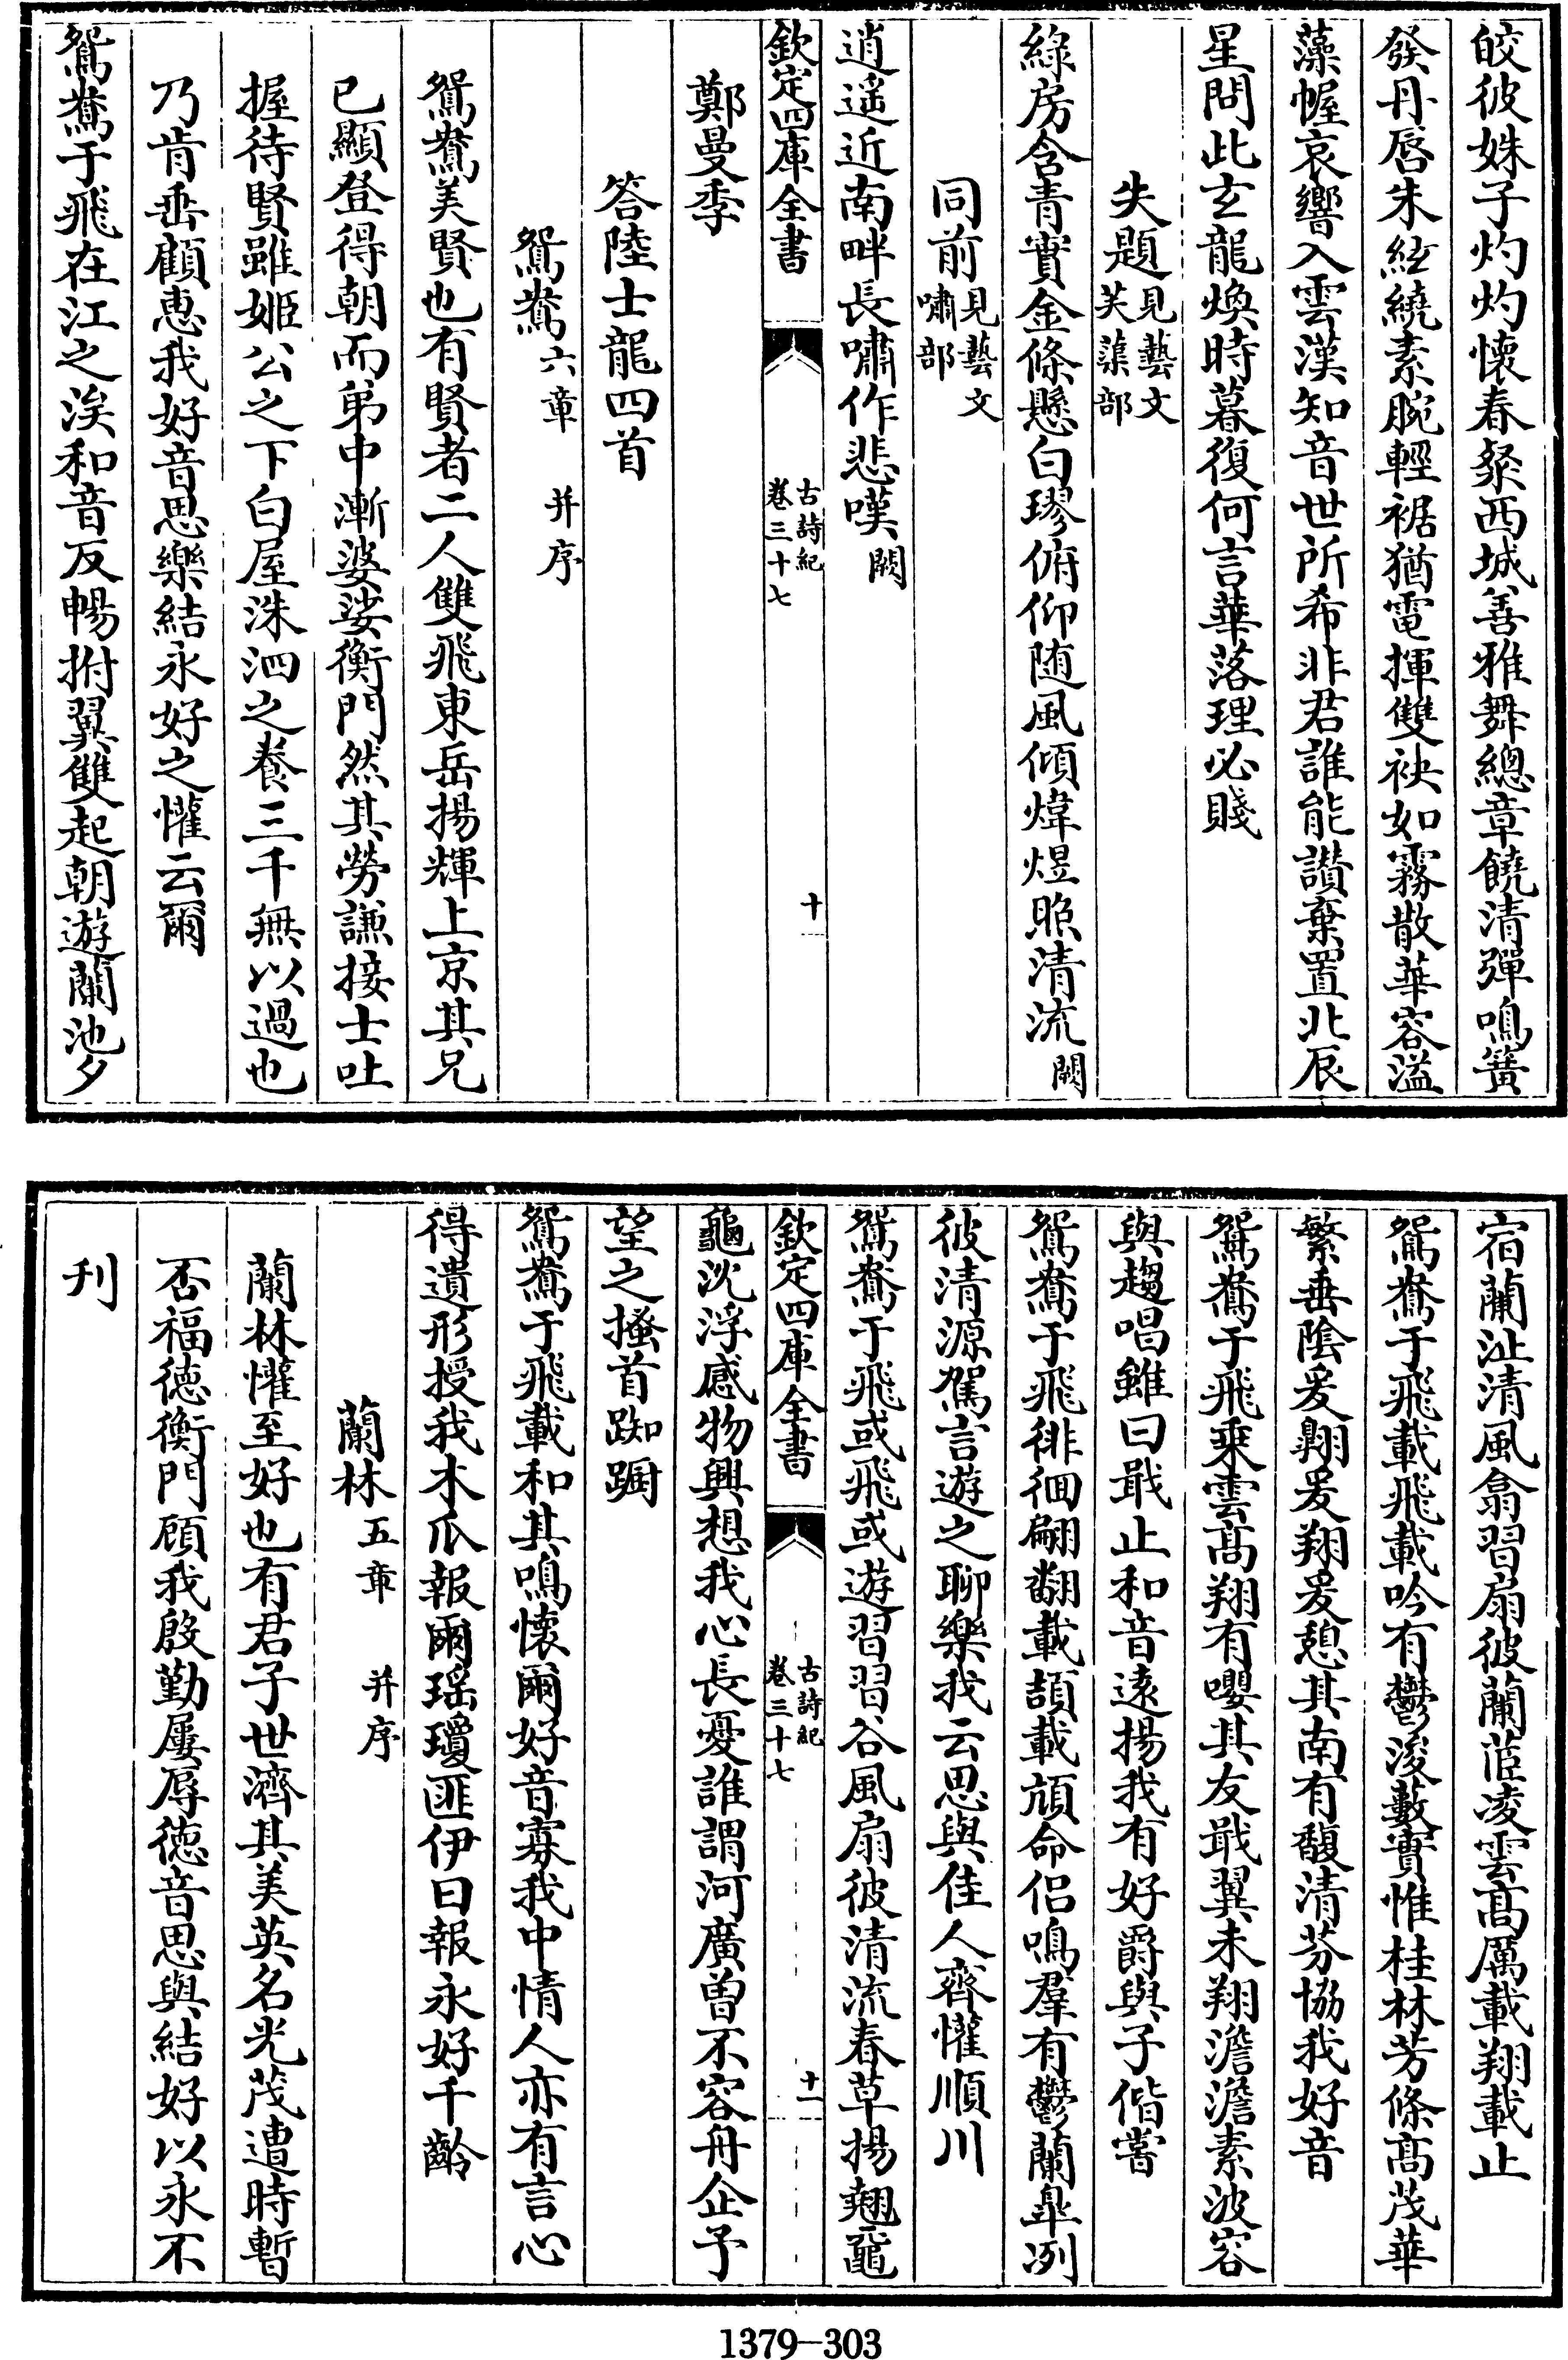 皎彼姝子灼灼懷春粲西城善雅舞總章饒清彈鳴簧
發丹唇朱絃繞素腕輕裾猶電揮雙袂如霧散華容溢
藻幄哀響入雲漢知音世所希非君誰能讚棄置北辰
星問此玄龍煥時暮復何言華落理必賤
失題見藝文芙蕖部
綠房含青實金條懸白璆俯仰随風傾煒煜照清流闕
同前見藝文嘯部
逍遥近南畔長嘯作悲嘆闕
欽定四庫全書 古詩紀卷三十七 十
鄭曼季
答陸士龍四首
鴛鴦六章 并序
鴛鴦美賢也有賢者二人雙飛東岳揚輝上京其兄
已顯登得朝而弟中漸婆娑衡門然其勞謙接士吐
握待賢雖姬公之下白屋洙泗之養三千無以過也
乃肯垂顧惠我好音思樂結永好之懽云爾
鴛鴦于飛在江之涘和音反暢拊翼雙起朝遊蘭池夕
宿蘭沚清風翕習扇彼蘭茝凌雲髙厲載翔載止
鴛鴦于飛載飛載吟有鬱浚藪實惟桂林芳條髙茂華
繁垂陰爰翺爰翔爰憩其南有馥清芬協我好音
鴛鴦于飛乗雲髙翔有嚶其友戢翼未翔澹澹素波容
與趨唱雖曰戢止和音遠揚我有好爵與子偕嘗
鴛鴦于飛徘徊翩翻載頡載頏命侣鳴羣有鬱蘭臯冽
彼清源駕言遊之聊樂我云思與佳人齊懽順川
鴛鴦于飛或飛或遊習習谷風扇彼清流春草揚翹黿
龜沈浮感物興想我心長憂誰謂河廣曽不容舟企予
望之搔首踟蹰
欽定四庫全書 古詩紀卷三十七 十一
鴛鴦于飛載和其鳴懷爾好音寡我中情人亦有言心
得遺形授我木瓜報爾瑶瓊匪伊日報永好千齡
蘭林五章 并序
蘭林懽至好也有君子世濟其美英名光茂遭時暫
否福徳衡門顧我殷勤屢辱徳音思與結好以永不
刋
1379-303